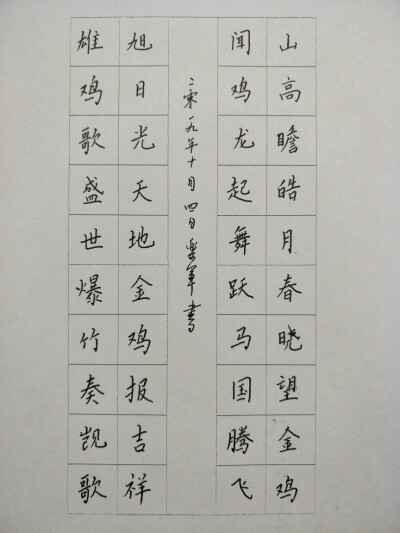 山高瞻皓月春晓望金鸡
闻鸡龙起舞跃马国腾飞
二零一九年十月四日
旭日光天地金鸡报吉祥
雄鸡歌盛世爆竹奏凯歌